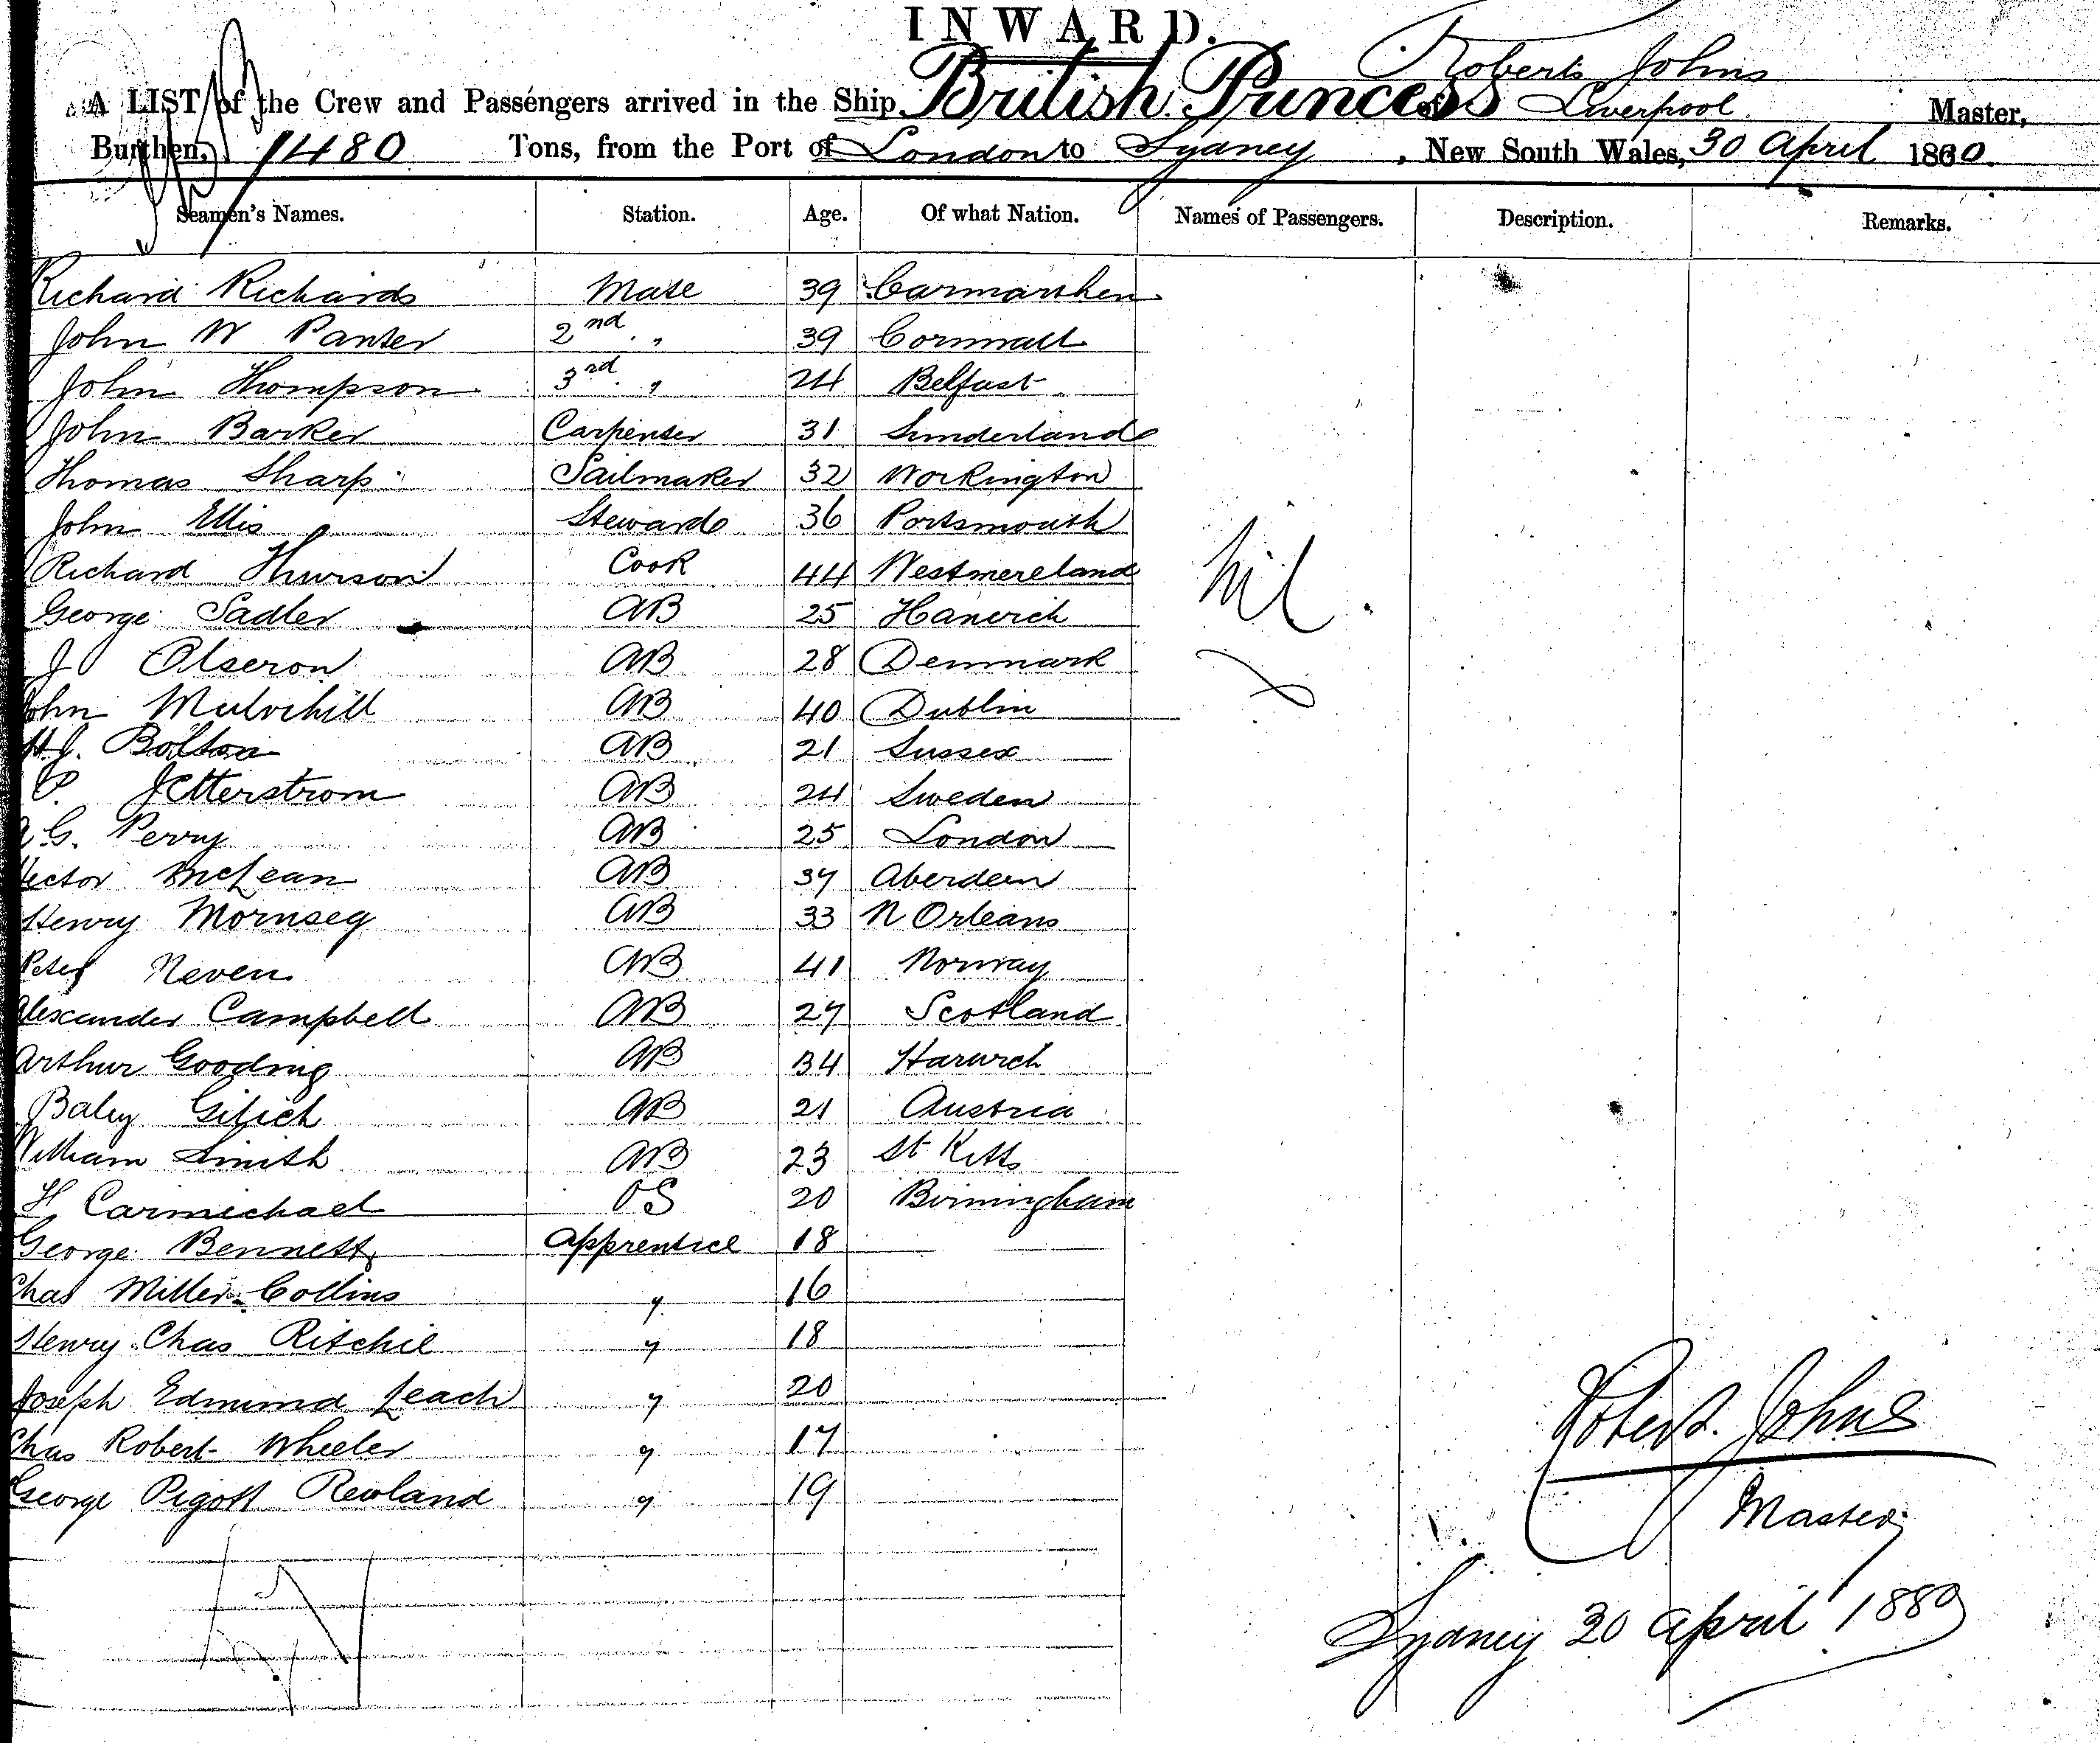 INWARD.
Robert Johns
A LIST of the Crew and Passengers arrived in the Ship British Princess of Liverpool Master,
Burthen, 1480 Tons, from the Port of London to Sydney, New South Wales, 30 April 1880.
Seamen's Names. Station. Age. Of what Nation. Names of Passengers. Description. Remarks.
Richard Richards Mate 39 Carmarthen
John W Panter 2nd " 39 Cornwall
John Thompson 3rd " 24 Belfast
John Barker Carpenter 31 Sunderland
Thomas Sharp Sailmaker 32 Workington
John Ellis Steward 36 Portsmouth
Richard Cook 44 Westmereland Nil.
George Sadler AB 25
J AB 28 Denmark
John Mulvihill AB 40 Dublin
H.J. Bolton AB 21 Sussex
P. Jetterstrom AB 24 Sweden
G. Perry AB 25 London
Hector McLean AB 37 Aberdeen
Henry Mornseg AB 33 N Orleans
Peter Neven AB 41 Norway
Alexander Campbell AB 27 Scotland
Arthur Gooding AB 34 Harwich
Gilich AB 21 Austria
William Smith AB 23 St Kitts
H Carmichael OS 20 Birmingham
George Bennett Apprentice 18
Chas Miller Collins " 16
Henry Chas Ritchie " 18
Joseph Edmund Leach " 20
Chas Robert Wheeler " 17
George Pigott Rowland " 19
Robert Johns
Master
Sydney 30 April 1880